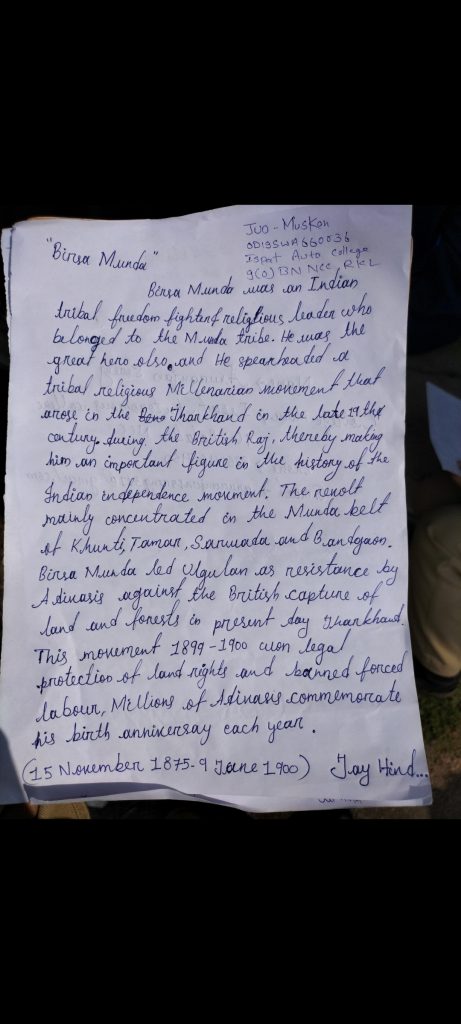 JUO - Muskan
OD19SWA660036
Ispat Auto College
9(O) BN NCC RKL
"Birsa Munda"
Birsa Munda was an Indian
tribal freedom fighter & religious leader who
belonged to the Munda tribe. He was the
great hero also. and He spearheaded a
tribal religious Millenarian movement that
arose in the Jharkhand in the late 19th
century during the British Raj, thereby making
him an important figure in the history of the
Indian independence movment. The revolt
mainly concentrated in the Munda belt
of Khunti, Tamar, Sarwada and Bandgaon.
Birsa Munda led Ulgulan as resistance by
Adivasis against the British capture of
land and forests in present day Jharkhand.
This movement 1899-1900 won legal
protection of land rights and banned forced
labour, Millions of Adivasis commemorate
his birth anniversay each year.
(15 November 1875-9 June 1900) Jay Hind...